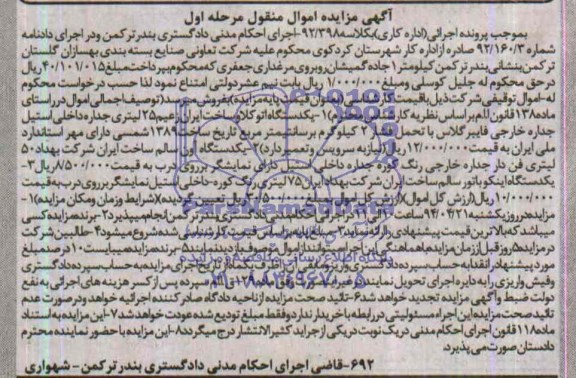 آگهی مزایده اموال منقول مرحله اول
بموجب پرونده اجرائی (اداره کاری) بکلاسه ۹۲/۳۹۸-اجرای احکام مدنی دادگستری بندرترکمن ودر اجرای دادنامه
شماره ۹۲/۱۶۰/۳ صادره از اداره کار شهرستان کردکوی محکوم علیه شرکت تعاونی صنایع بسته بندی بهسازان گلستان
ترکمن بنشانی بندرترکمن کیلومتر ۱ جاده گمیشان روبروی مرغداری جعفری که محکوم بپرداخت مبلغ ۴۰/۱۰۱/۰۱۵ ریال
در حق محکوم له جلیل کوسلی ومبلغ ۱/۰۰۰/۰۰۰ ریال بابت نیم عشر دولتی امتناع نمود لذا حسب درخواست محکوم
له-اموال توقیفی شرکت ذیل باقیمت کارشناسی (بعنوان قیمت پایه مزایده) بفروش میرسد (توصیف اجمالی اموال در راستای
ماده ۱۳۸ قانون ا.ا.م براساس نظریه کارشناس ۱-یکدستگاه اتوکلاو ساخت ایران زعیم ۲۵ لیتری جداره داخلی استیل
جداره خارجی فایبرگلاس با تحمل فشار ۲ کیلوگرم برسانتیمتر مربع تاریخ ساخت ۱۳۸۹ شمسی دارای مهر استاندارد
ملی ایران به قیمت ۱۲/۰۰۰/۰۰۰ ریال (نیاز به سرویس وتعمیر دارد) ۲-یکدستگاه آون سالم ساخت ایران شرکت بهداد ۵۰
لیتری فن دار جداره خارجی رنگ کوره جداره داخلی استیل دارای نمایشگر برروی درب به قیمت ۸۵۰۰/۰۰۰ ریال ۳-
یکدستگاه اینکوباتور سالم ساخت ایران شرکت بهداد ایران ۷۵ لیتری رنگ کوره-داخلی استیل نمایشگر برروی درب به قیمت
۱۰/۰۰۰/۰۰۰ ریال (ارزش کل اموال) ارزش کل اموال به مبلغ ریال تعیین گردیده) (شرایط وزمان ومکان مزایده) ۱-
مزایده در روز یکشنبه ۹۴/۰۴/۲۱ ساعت در دفتر اجرای احکام مدنی دادگستری بندرترکمن انجام میپذیرد ۲-برنده مزایده کسی
میباشد که بالاترین قیمت پیشنهادی را ارائه نماید ۳-مبلغ پایه مزایده براساس قیمت کارشناسی شده شروع میشود ۴-طالبین شرکت
در مزایده ۵ روز قبل از زمان مزایده باهماهنگی این اجرا میتوانند از اموال موصوف بازدید نمایند ۵-برنده مزایده میبایست ۱۰ درصد مبلغ
مورد پیشنهاد را نقدا به حساب سپرده دادگستری واریز و مابقی آن را ظرف یکماه از تاریخ اجرای مزایده به حساب سپرده دادگستری
وفیش واریزی را به دایره اجرای تحویل نماینددر غیر سپرده پس از کسر هزینه های اجرائی به نفع
دولت ضبط وآگهی مزایده تجدید خواهد شد ۶-تائید صحت مزایده از ناحیه دادگاه صادر کننده اجرائیه خواهد ودر صورت عدم
تائید صحت مزایده این اجراء مسئولیتی در رابطه با خریدار ندارد وفقط مبلغ تودیع شده عودت خواهد شد ۷-این مزایده به استناد
ماده ۱۱۸ قانون اجرای احکام مدنی در یک نوبت در یکی از جراید کثیرالانتشار درج میگردد ۸-این مزایده با حضور نماینده محترم
دادستان صورت می پذیرد.
۶۹۲-قاضی اجرای احکام مدنی دادگستری بندرترکمن-شهواری